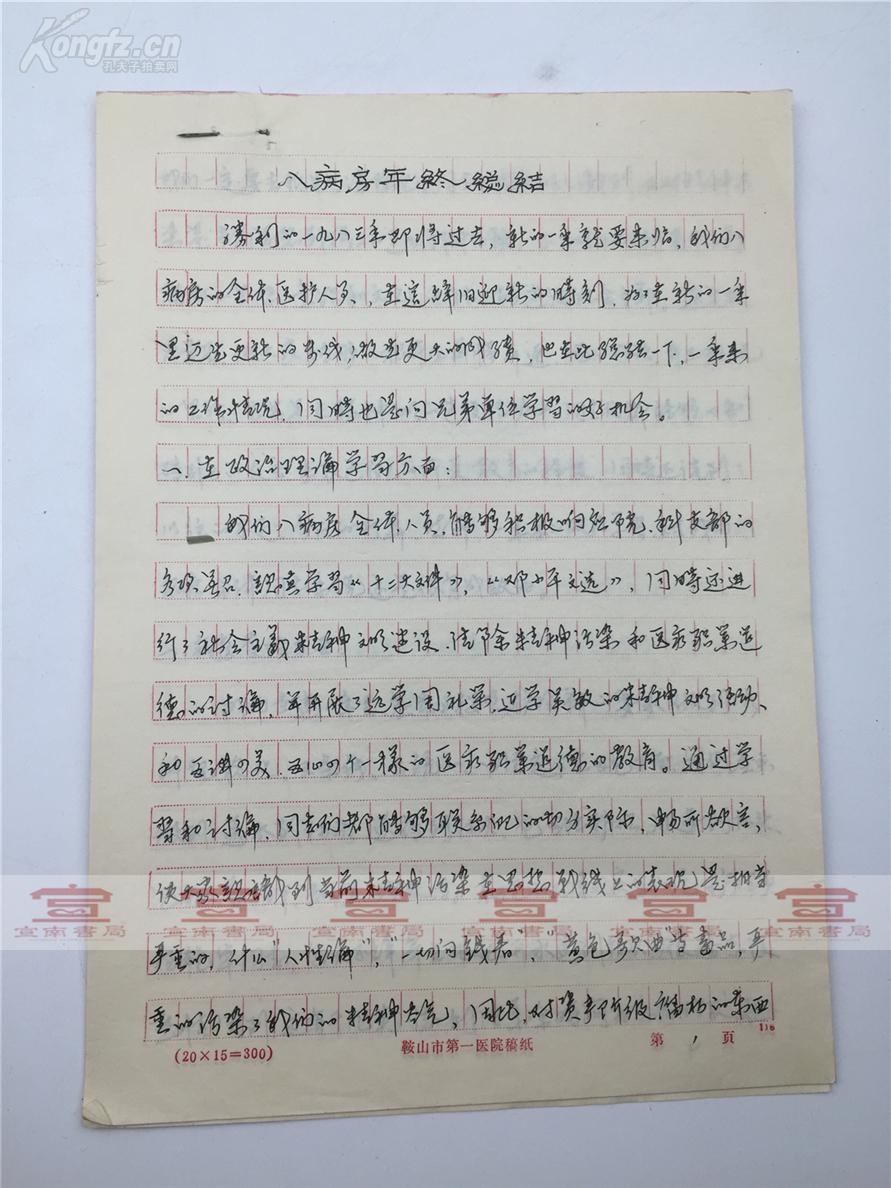 Kongfz.cn
孔夫子拍卖网
八病房年終總結
勝利的一九八三年即将过去，新的一年就要来临，我们八
病房的全体医护人员，在這辞旧迎新的時刻，为在新的一年
里迈出更新的步伐，做出更大的成績，也在此總結一下，一年来
的工作情况，同時也是向兄弟单位学習的好机会。
一、在政治理論学習方面：
我们八病房全体人员，能够积极响应院、科支部的
各项号召，認真学習《十二大文件》，《邓小平文选》，同時还进
行了社会主義精神文明建设、清除精神污染和医疗职業道
德的讨論，并开展了远学周礼荣，近学吴敏的精神文明活动、
和五讲四美、五心四个一樣的医疗职業道德的教育。通过学
習和讨論，同志们都能够联系自己的切身实际，畅所欲言，
使大家認識到当前精神污染在思想战线上的表现是相当
严重的，什么"人性論"，"一切向錢看"，"黄色录像"等毒品，严
重的污染了我们的精神空气，因此，对资产阶级腐朽的东西
(20×15=300)
鞍山市第一医院稿纸
第 1 頁
116
宣南書局 宣南書局 宣南書局 宣南書局 宣南書局 宣南書局